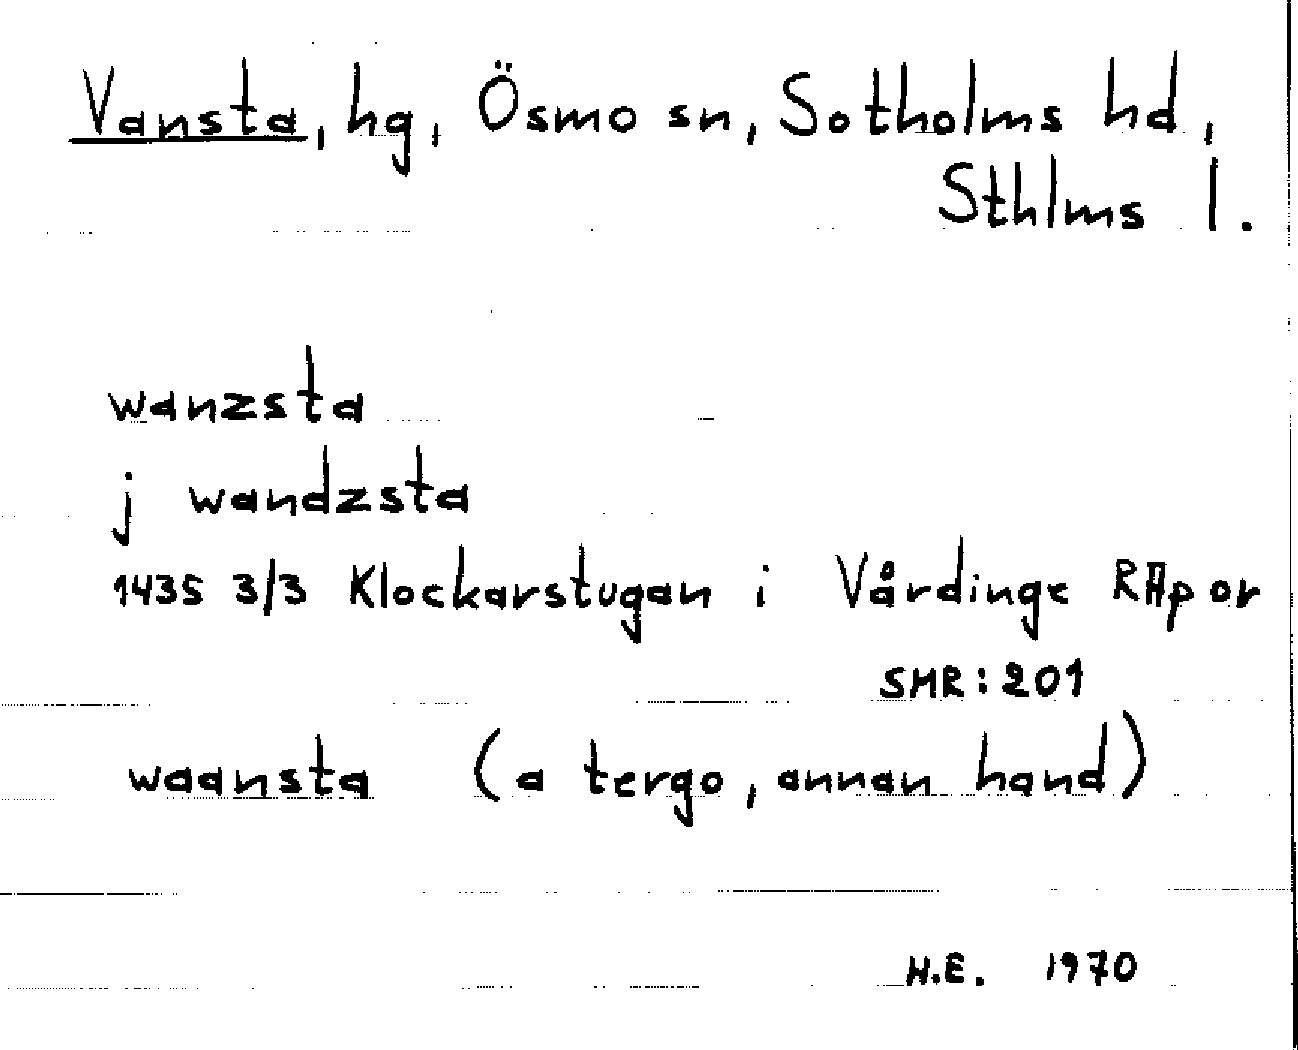 Vansta, hg, Ösmo sn, Sotholms hd,
Sthlms l.
wanzsta
j wandzsta
1435 3/3 Klockarstugan i Vårdinge RAp or
SMR: 201
waansta (a tergo, annan hand)
H.E. 1970